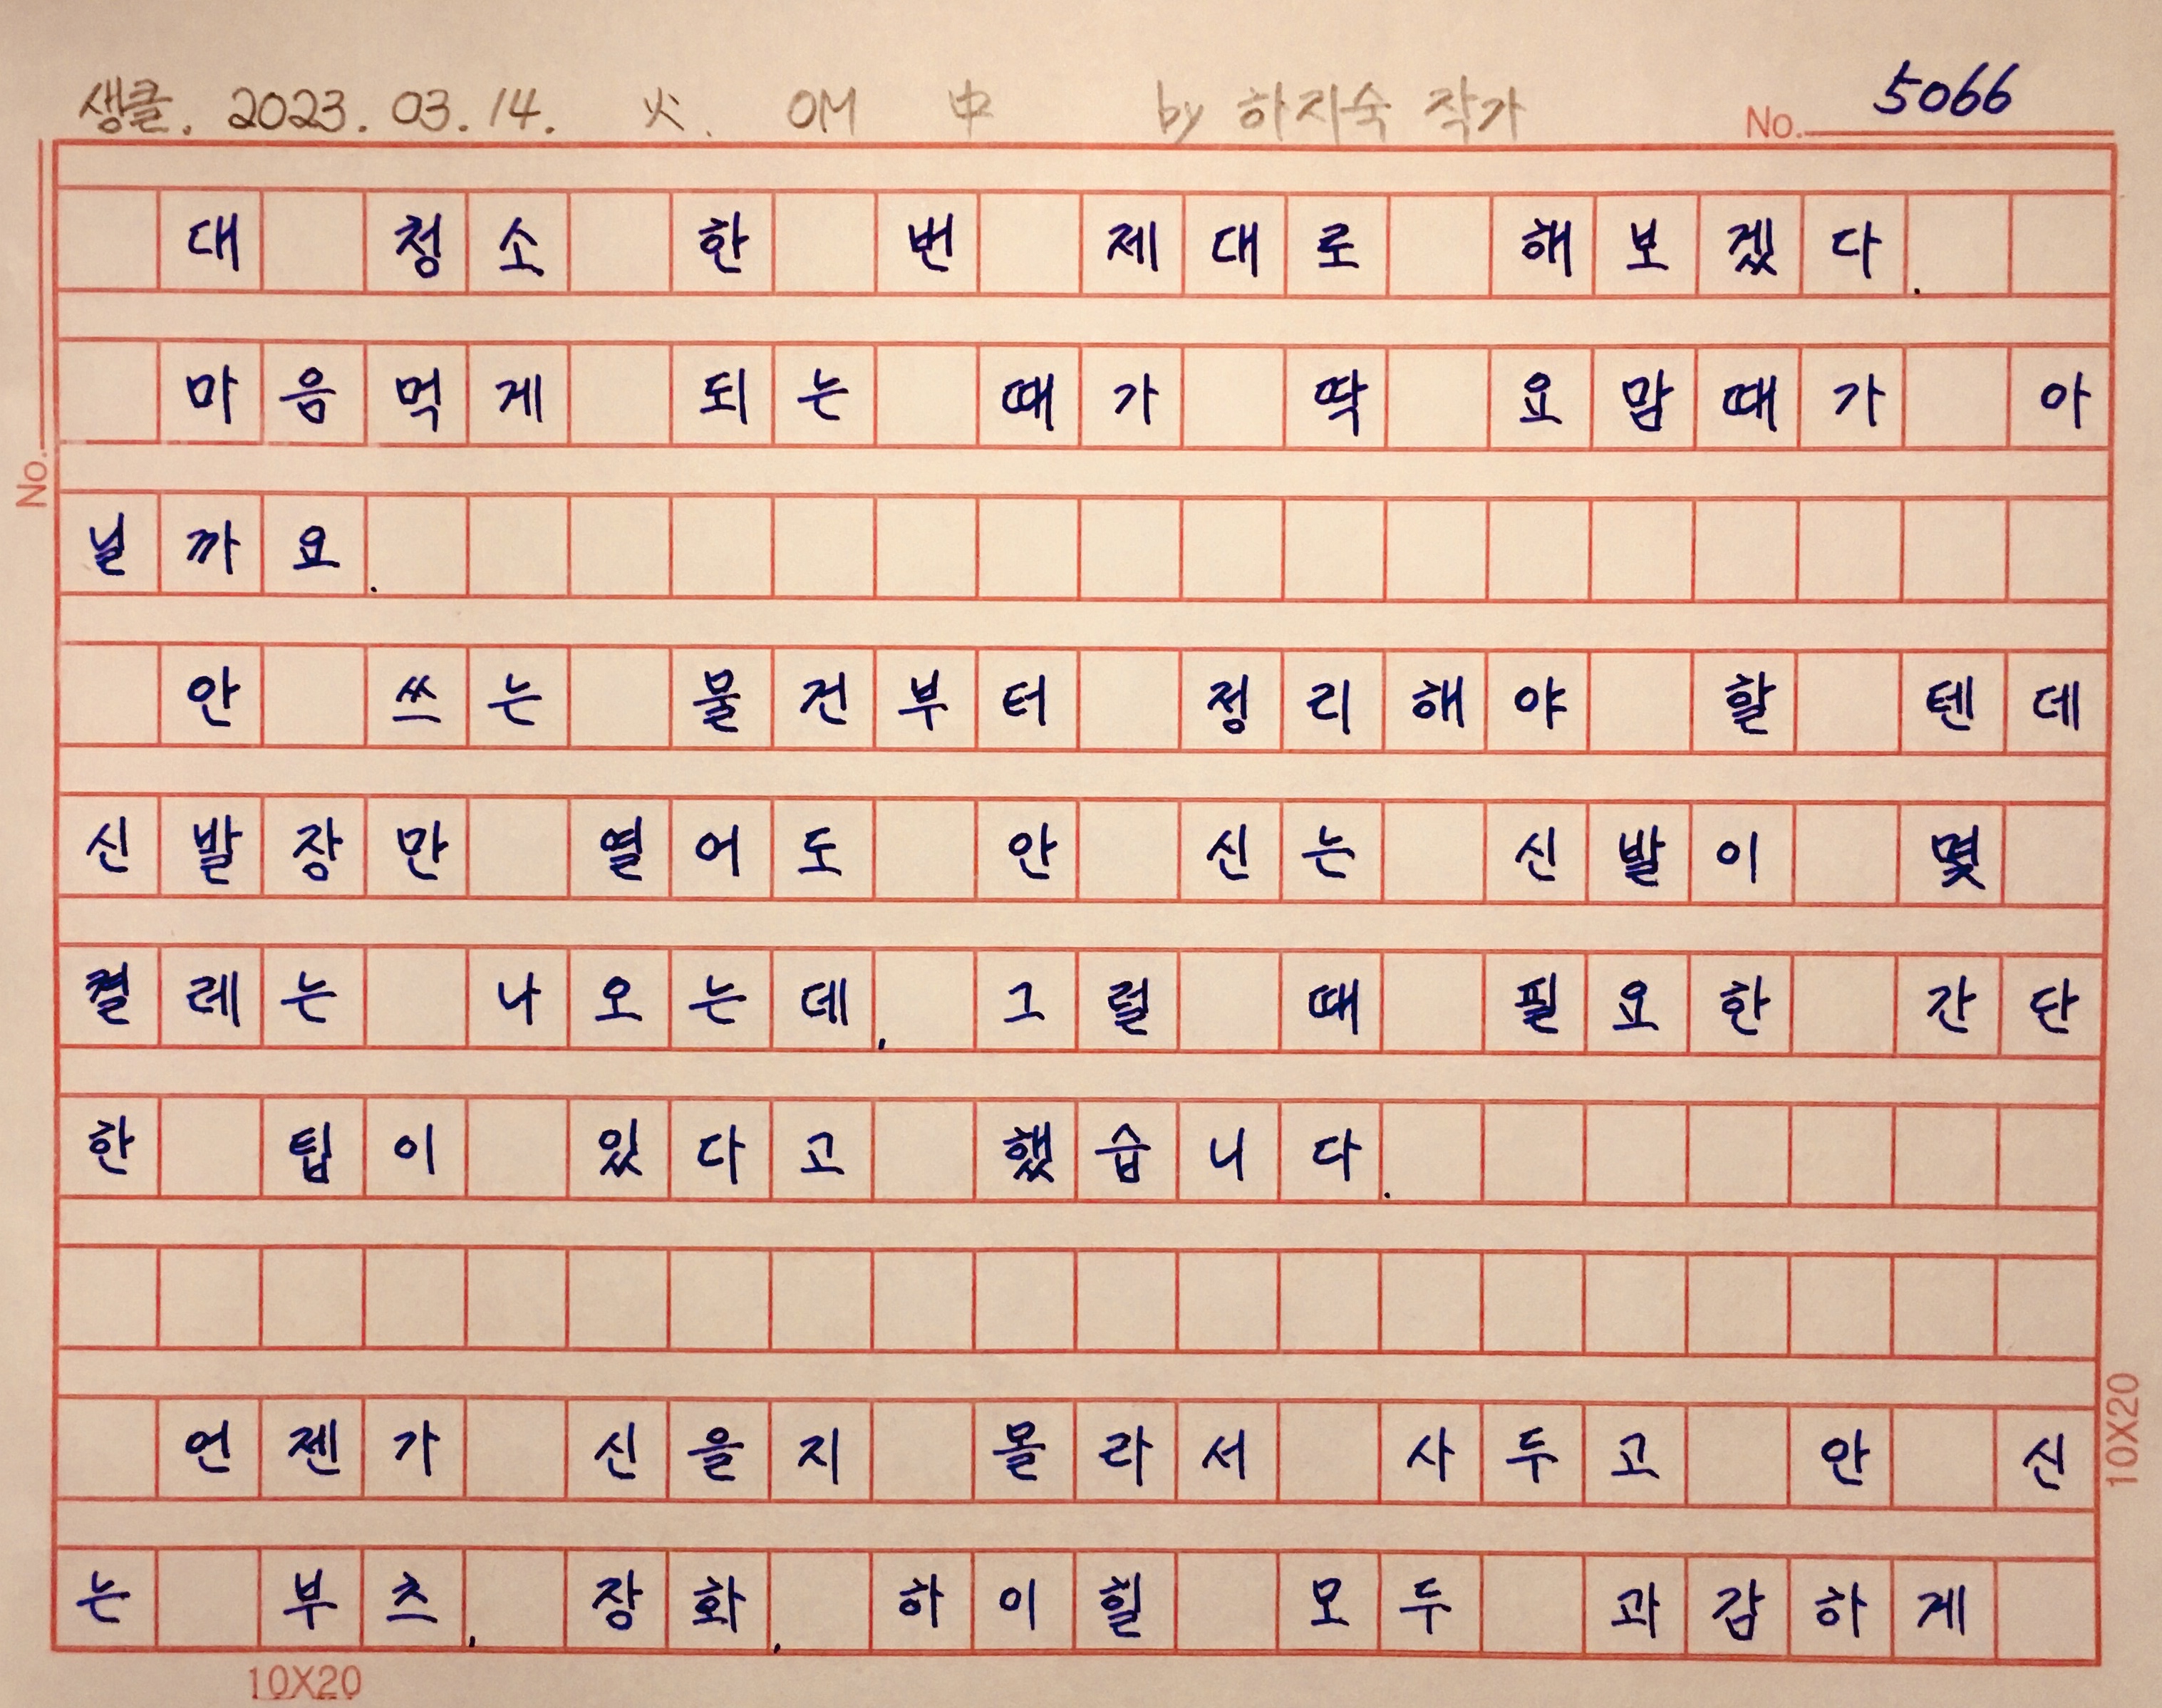 생클. 2023. 03. 14. 火. OM 中 by 하지숙 작가 No. 5066
대 청소 한 번 제대로 해보겠다.
마음먹게 되는 때가 딱 요맘때가 아
닐까요.
안 쓰는 물건부터 정리해야 할 텐데
신발장만 열어도 안 신는 신발이 몇
켤레는 나오는데, 그럴 때 필요한 간단
한 팁이 있다고 했습니다.
언젠가 신을지 몰라서 사두고 안 신
는 부츠, 장화, 하이힐 모두 과감하게
No.
10X20
10X20